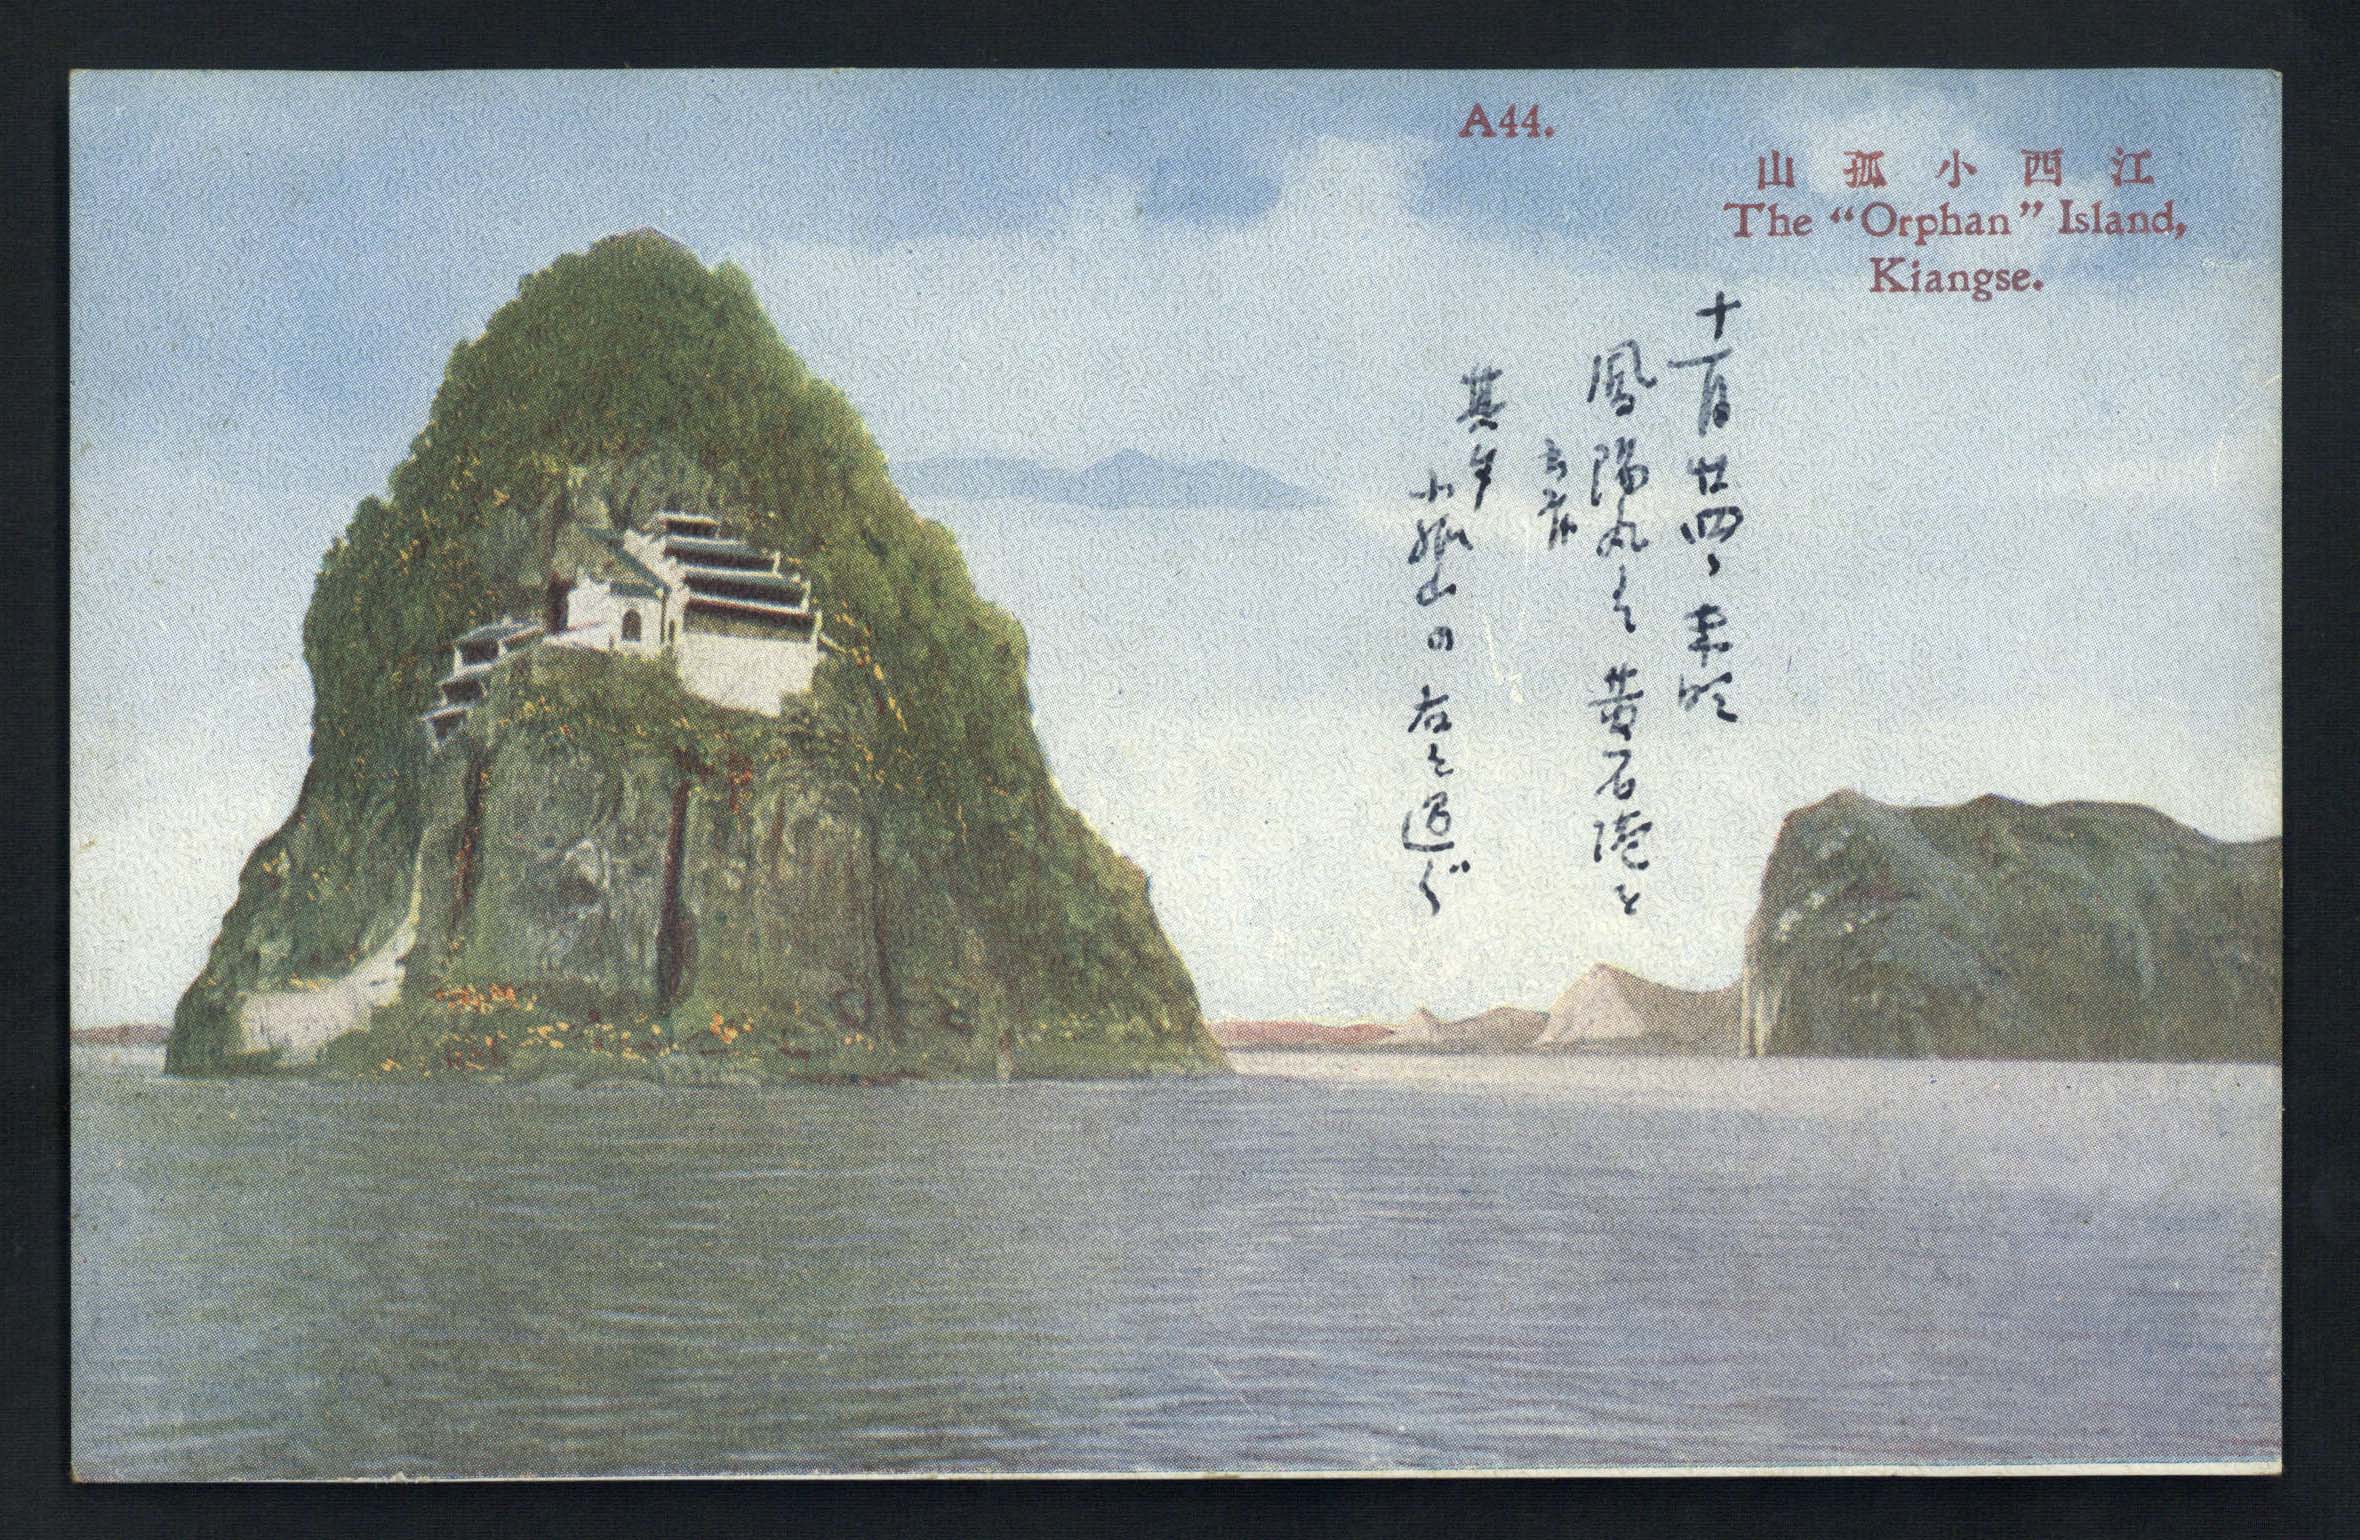 A44.
江西小孤山
The “Orphan” Island,
Kiangse.
十一月廿四、未明
鳳陽丸ニて黄石港を
出帆
其夕
小孤山の右を過ぐ